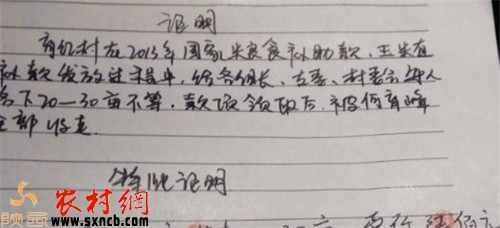 证明
育红村在2013年国家粮食补助款、玉米直
补款发放过程中，给各组长、支委、村委会每人
名下20—30亩不等，款项领取后，被何育峰
全部收走
特此证明
陕蜀
农村網
www.sxncb.com